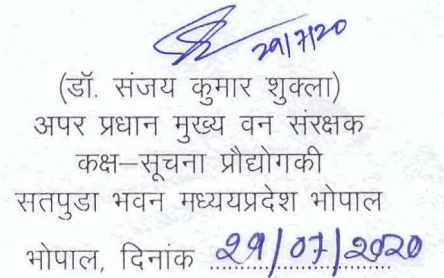 29/7/20
(डॉ. संजय कुमार शुक्ला)
अपर प्रधान मुख्य वन संरक्षक
कक्ष–सूचना प्रौद्योगकी
सतपुडा भवन मध्ययप्रदेश भोपाल
भोपाल, दिनांक 29/07/2020